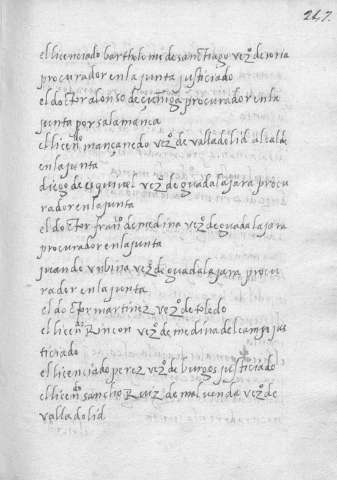 247.
el licenciado bartholome de sanctiago vez.º de soria
procurador en la junta justiciado
el doctor alonso de çuñiga procurador en la
junta por salamanca
el licen.do mançanedo vez.º de valladolid alcalde
en la junta
diego de esquivel vez.º de guadalajara procu
rador en la junta
el doctor fran.co de medina vez.º de guadalajara
procurador en la junta
juan de vrbina vez.º de guadalajara procu
rador en la junta
el doctor martinez vez.º de toledo
el licen.do Rincon vez.º de medina del campo jus
ticiado
el licenciado perez vez.º de burgos justiciado
el licen.do sancho Ruiz de maluenda vez.º de
valladolid